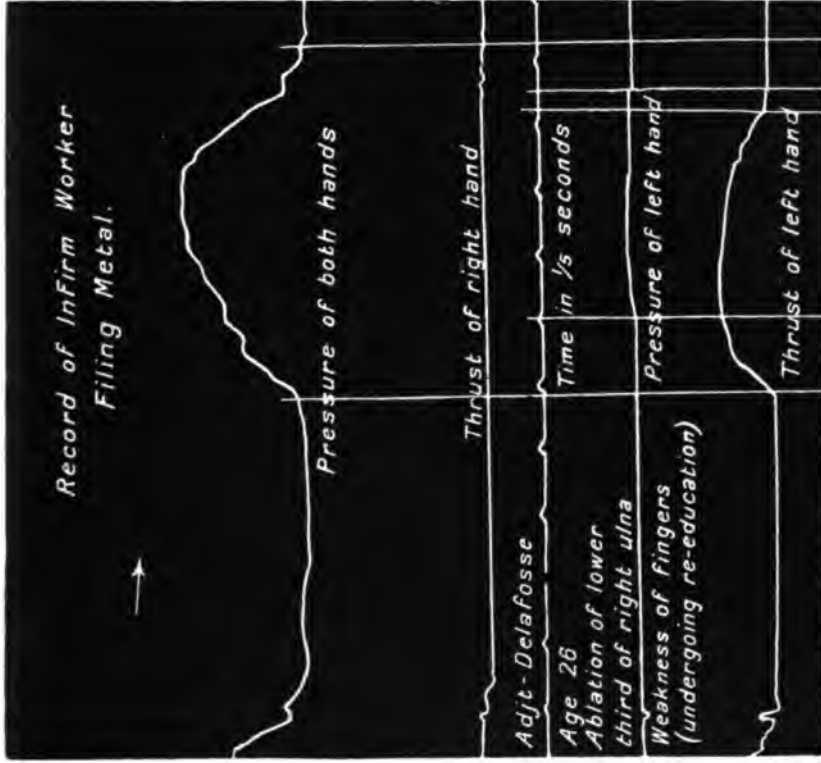 Record of Infirm Worker
Filing Metal.
Pressure of both hands
Thrust of right hand
Adjt- Delafosse
Time in 1/5 seconds
Age 26
Ablation of lower
third of right ulna
Pressure of left hand
Weakness of fingers
(undergoing re-education)
Thrust of left hand